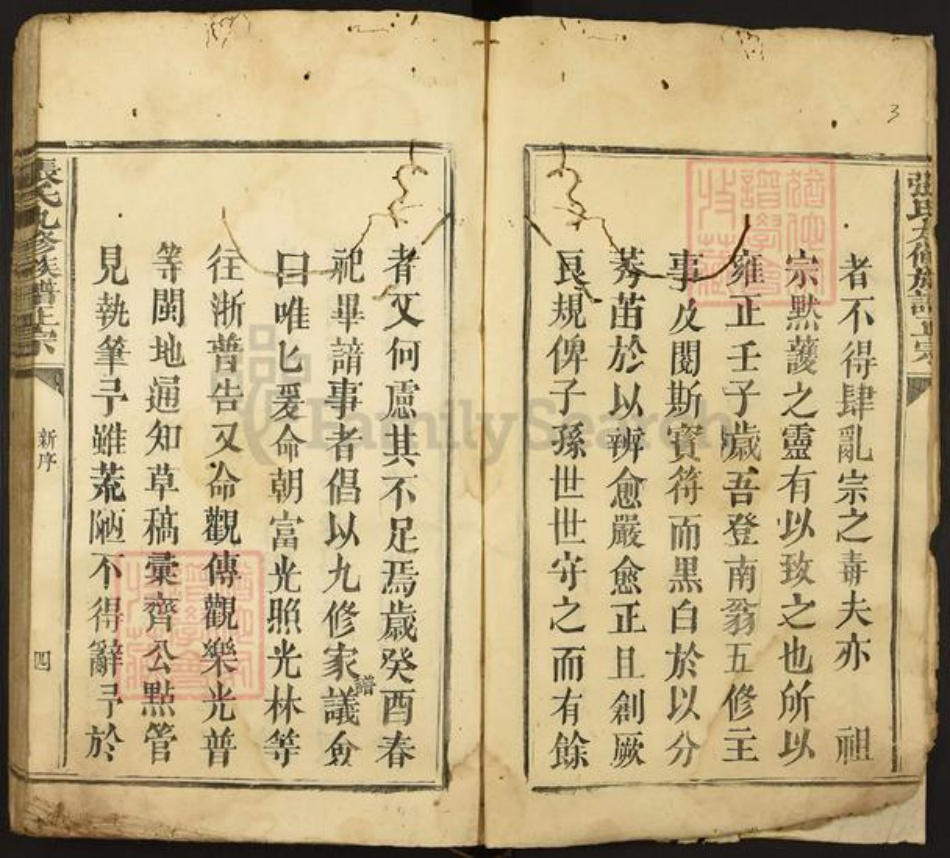 3
張氏九修族譜正宗
者不得肆亂宗之毒夫亦 祖
宗默護之靈有以致之也所以
雍正壬子歲吾登南翁五修主
事及閱斯寶符而黑白於以分
莠苗於以辨愈嚴愈正且創厥
良規俾子孫世世守之而有餘
者又何慮其不足焉歲癸酉春
祀畢諳事者倡以九修家譜議僉
曰唯匕爰命朝富光照光林等
往浙普告又命觀傳觀樂光普
等閩地通知草稿彙齊公點管
見執筆予雖荒陋不得辭予於
張氏九修族譜正宗
新序
四
FamilySearch